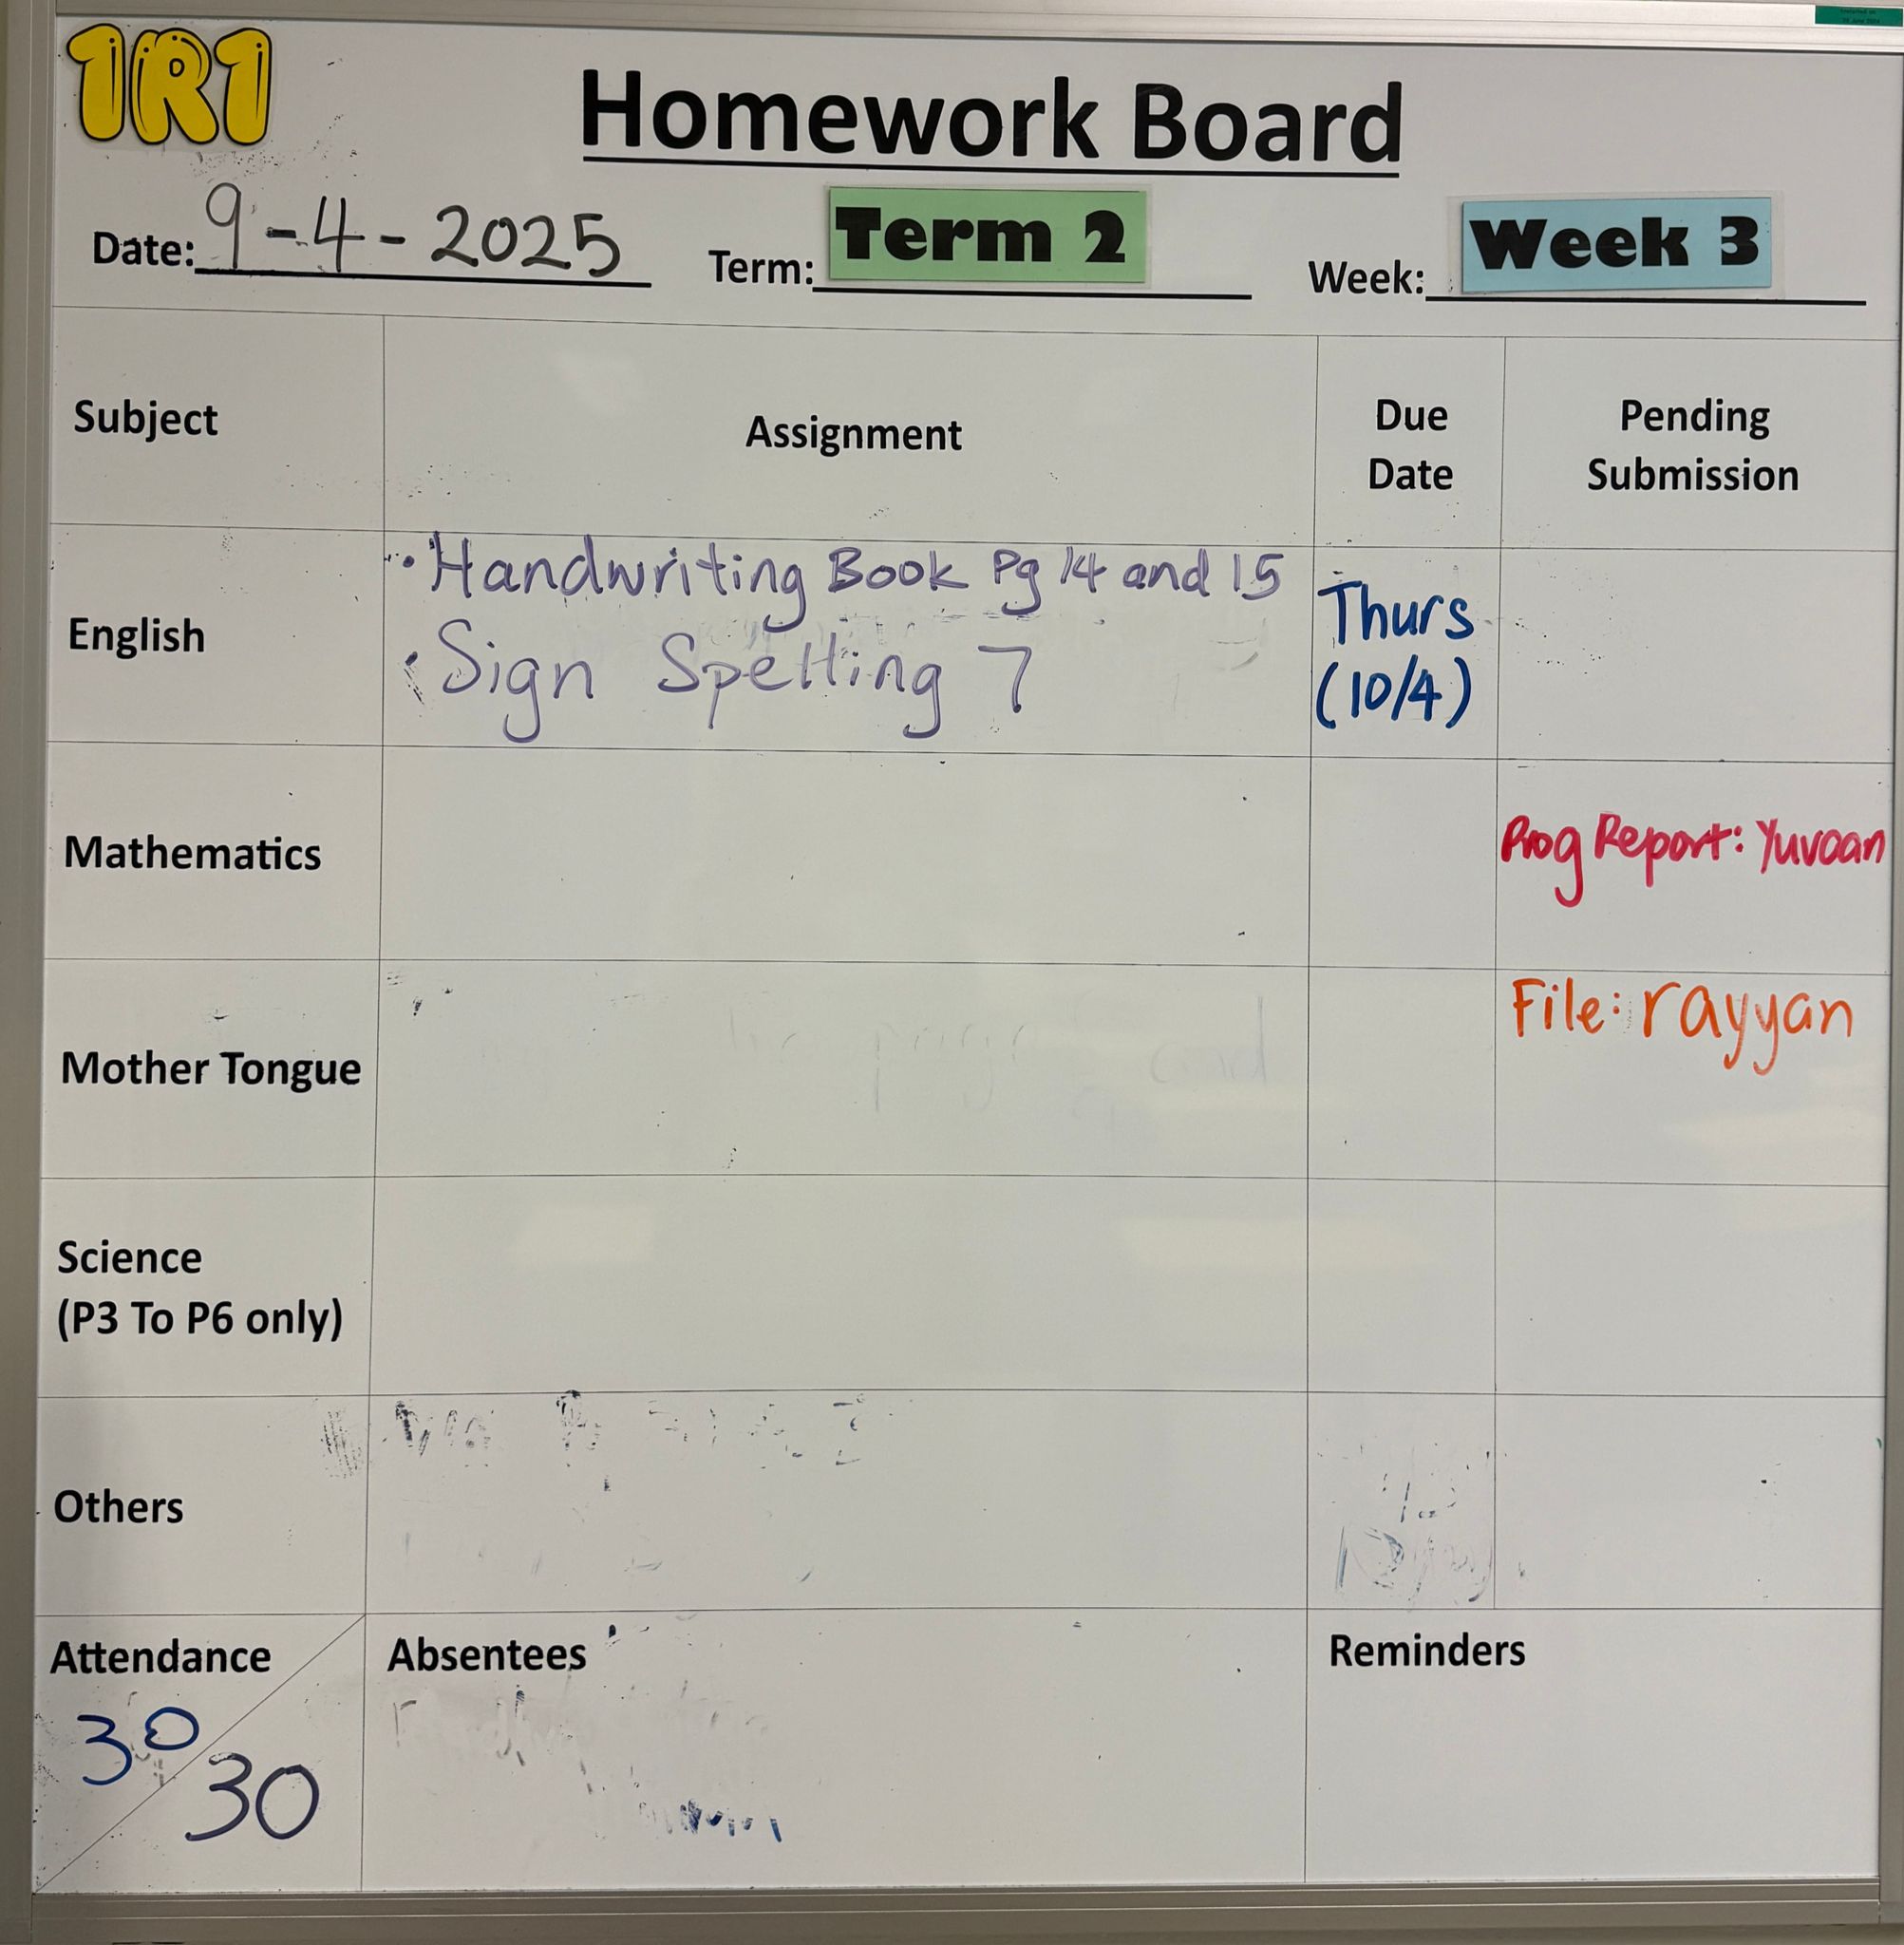 1R1
Homework Board
Date: 9-4-2025 Term: Term 2 Week: Week 3
Subject
Assignment
Due
Date
Pending
Submission
English
• Handwriting Book Pg 14 and 15
• Sign Spelling 7
Thurs
(10/4)
Mathematics
Prog Report: Yuvaan
Mother Tongue
File: rayyan
Science
(P3 To P6 only)
Others
Attendance
30
30
Absentees
Reminders